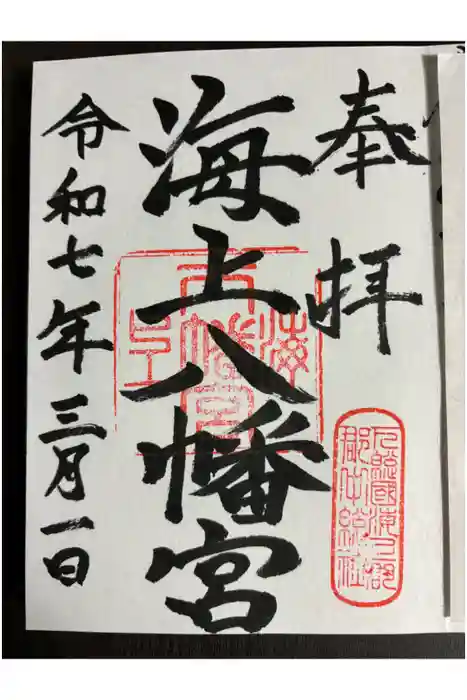 奉拝
海上八幡宮
令和七年三月一日